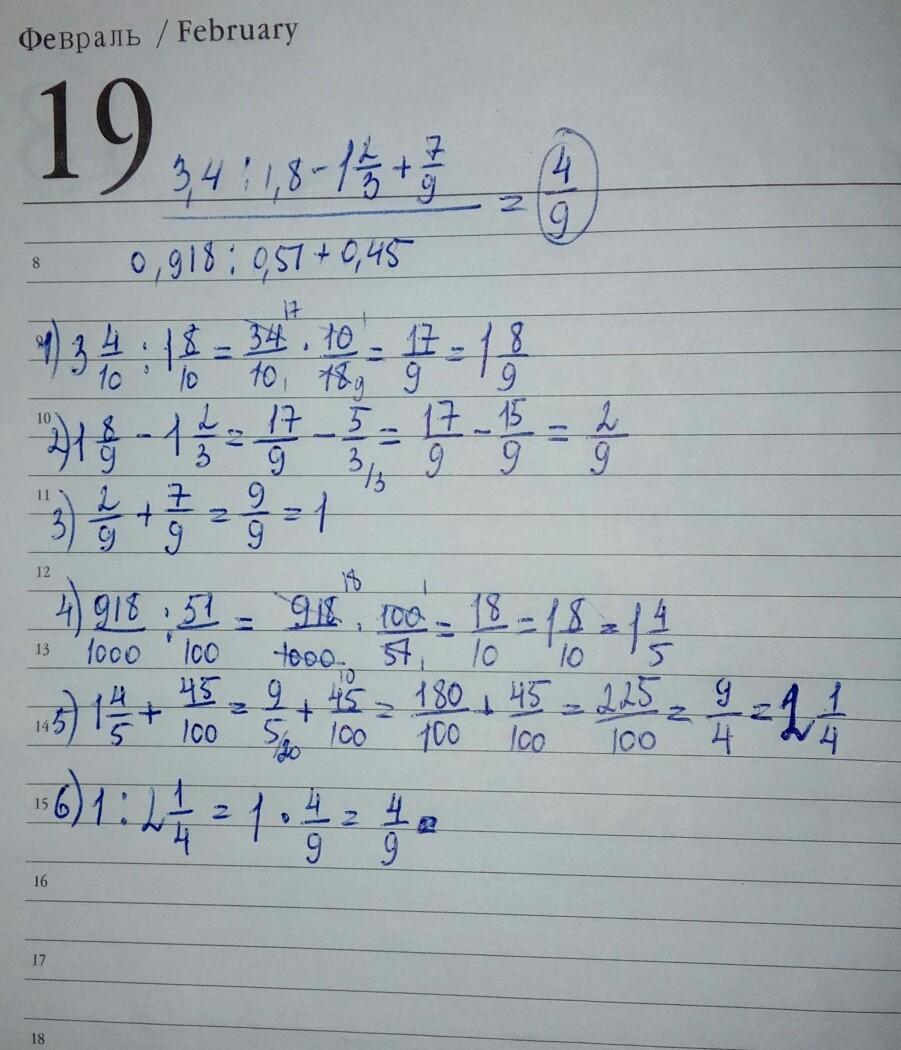 Февраль / February
19
3,4 : 1,8 - 1 2/3 + 7/9
= 4/9
8
0,918 : 0,51 + 0,45
1) 3 4/10 : 1 8/10 = 34/10 · 10/18 = 17/9 = 1 8/9
10
2) 1 8/9 - 1 2/3 = 17/9 - 5/3 = 17/9 - 15/9 = 2/9
11
3) 2/9 + 7/9 = 9/9 = 1
12
4) 918/1000 : 51/100 = 918/1000 · 100/51 = 18/10 = 1 8/10 = 1 4/5
13
14
5) 1 4/5 + 45/100 = 9/5 + 45/100 = 180/100 + 45/100 = 225/100 = 9/4 = 2 1/4
15
6) 1 : 2 1/4 = 1 · 4/9 = 4/9
16
17
18